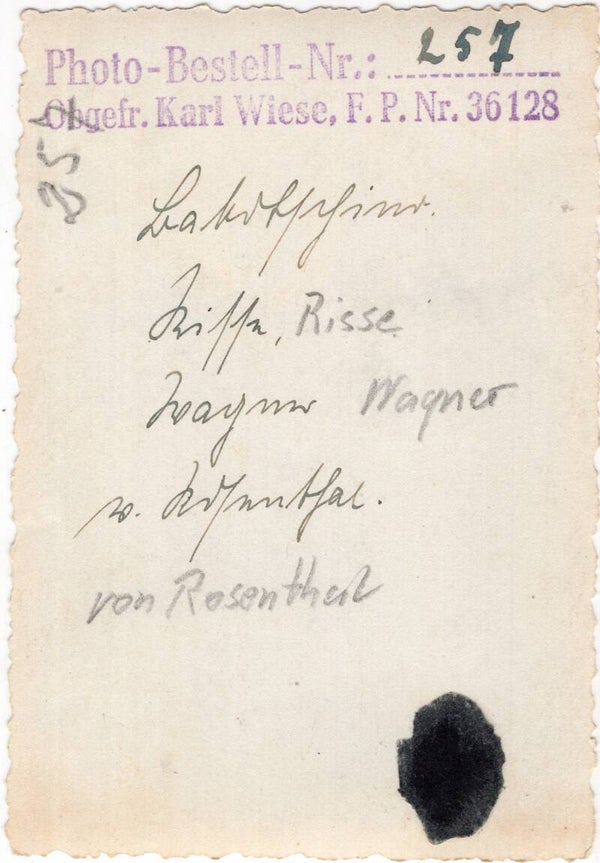 Photo-Bestell-Nr.: 257
Obgefr. Karl Wiese, F. P. Nr. 36128
Risse, Risse
Wagner Wagner
v. Rosenthal.
von Rosenthal